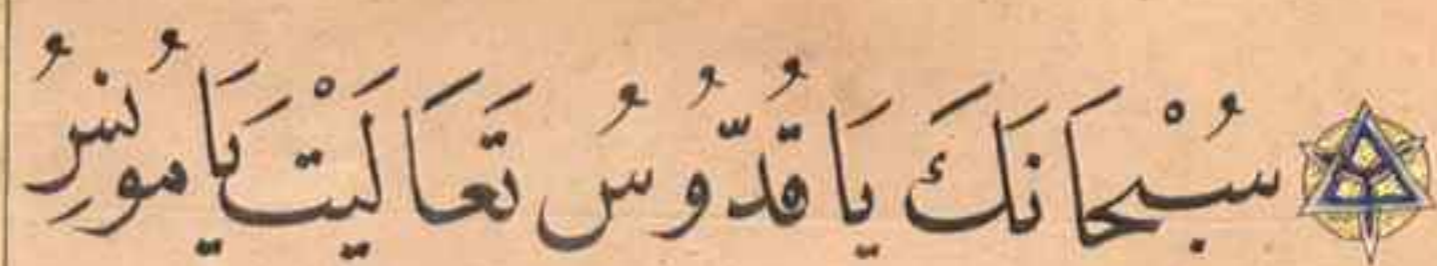 سُبْحَانَكَ يَا قُدُّوسُ تَعَالَيْتَ يَا مُونِسُ